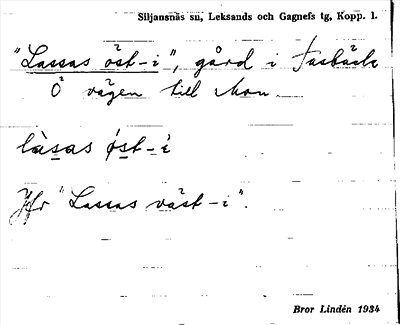 Siljansnäs sn, Leksands och Gagnefs tg, Kopp. l.
"Lassas öst-i", gård i Järsbäck
Ö vägen till Mon
làsas òst-ì
Jfr "Lassas väst-i".
Bror Lindén 1934